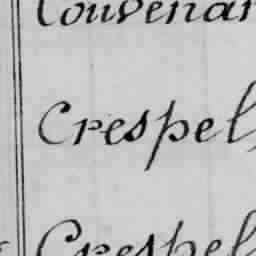 Couvenan
Crespel
Crespel